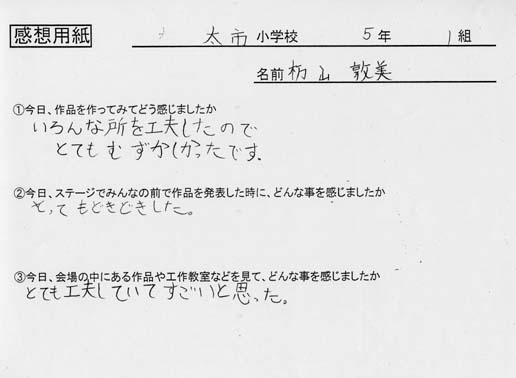 感想用紙
太市 小学校 5年 1組
名前 栃山 敦美
①今日、作品を作ってみてどう感じましたか
いろんな所を工夫したので
とてもむずかしかったです。
②今日、ステージでみんなの前で作品を発表した時に、どんな事を感じましたか
とってもどきどきした。
③今日、会場の中にある作品や工作教室などを見て、どんな事を感じましたか
とても工夫していてすごいと思った。